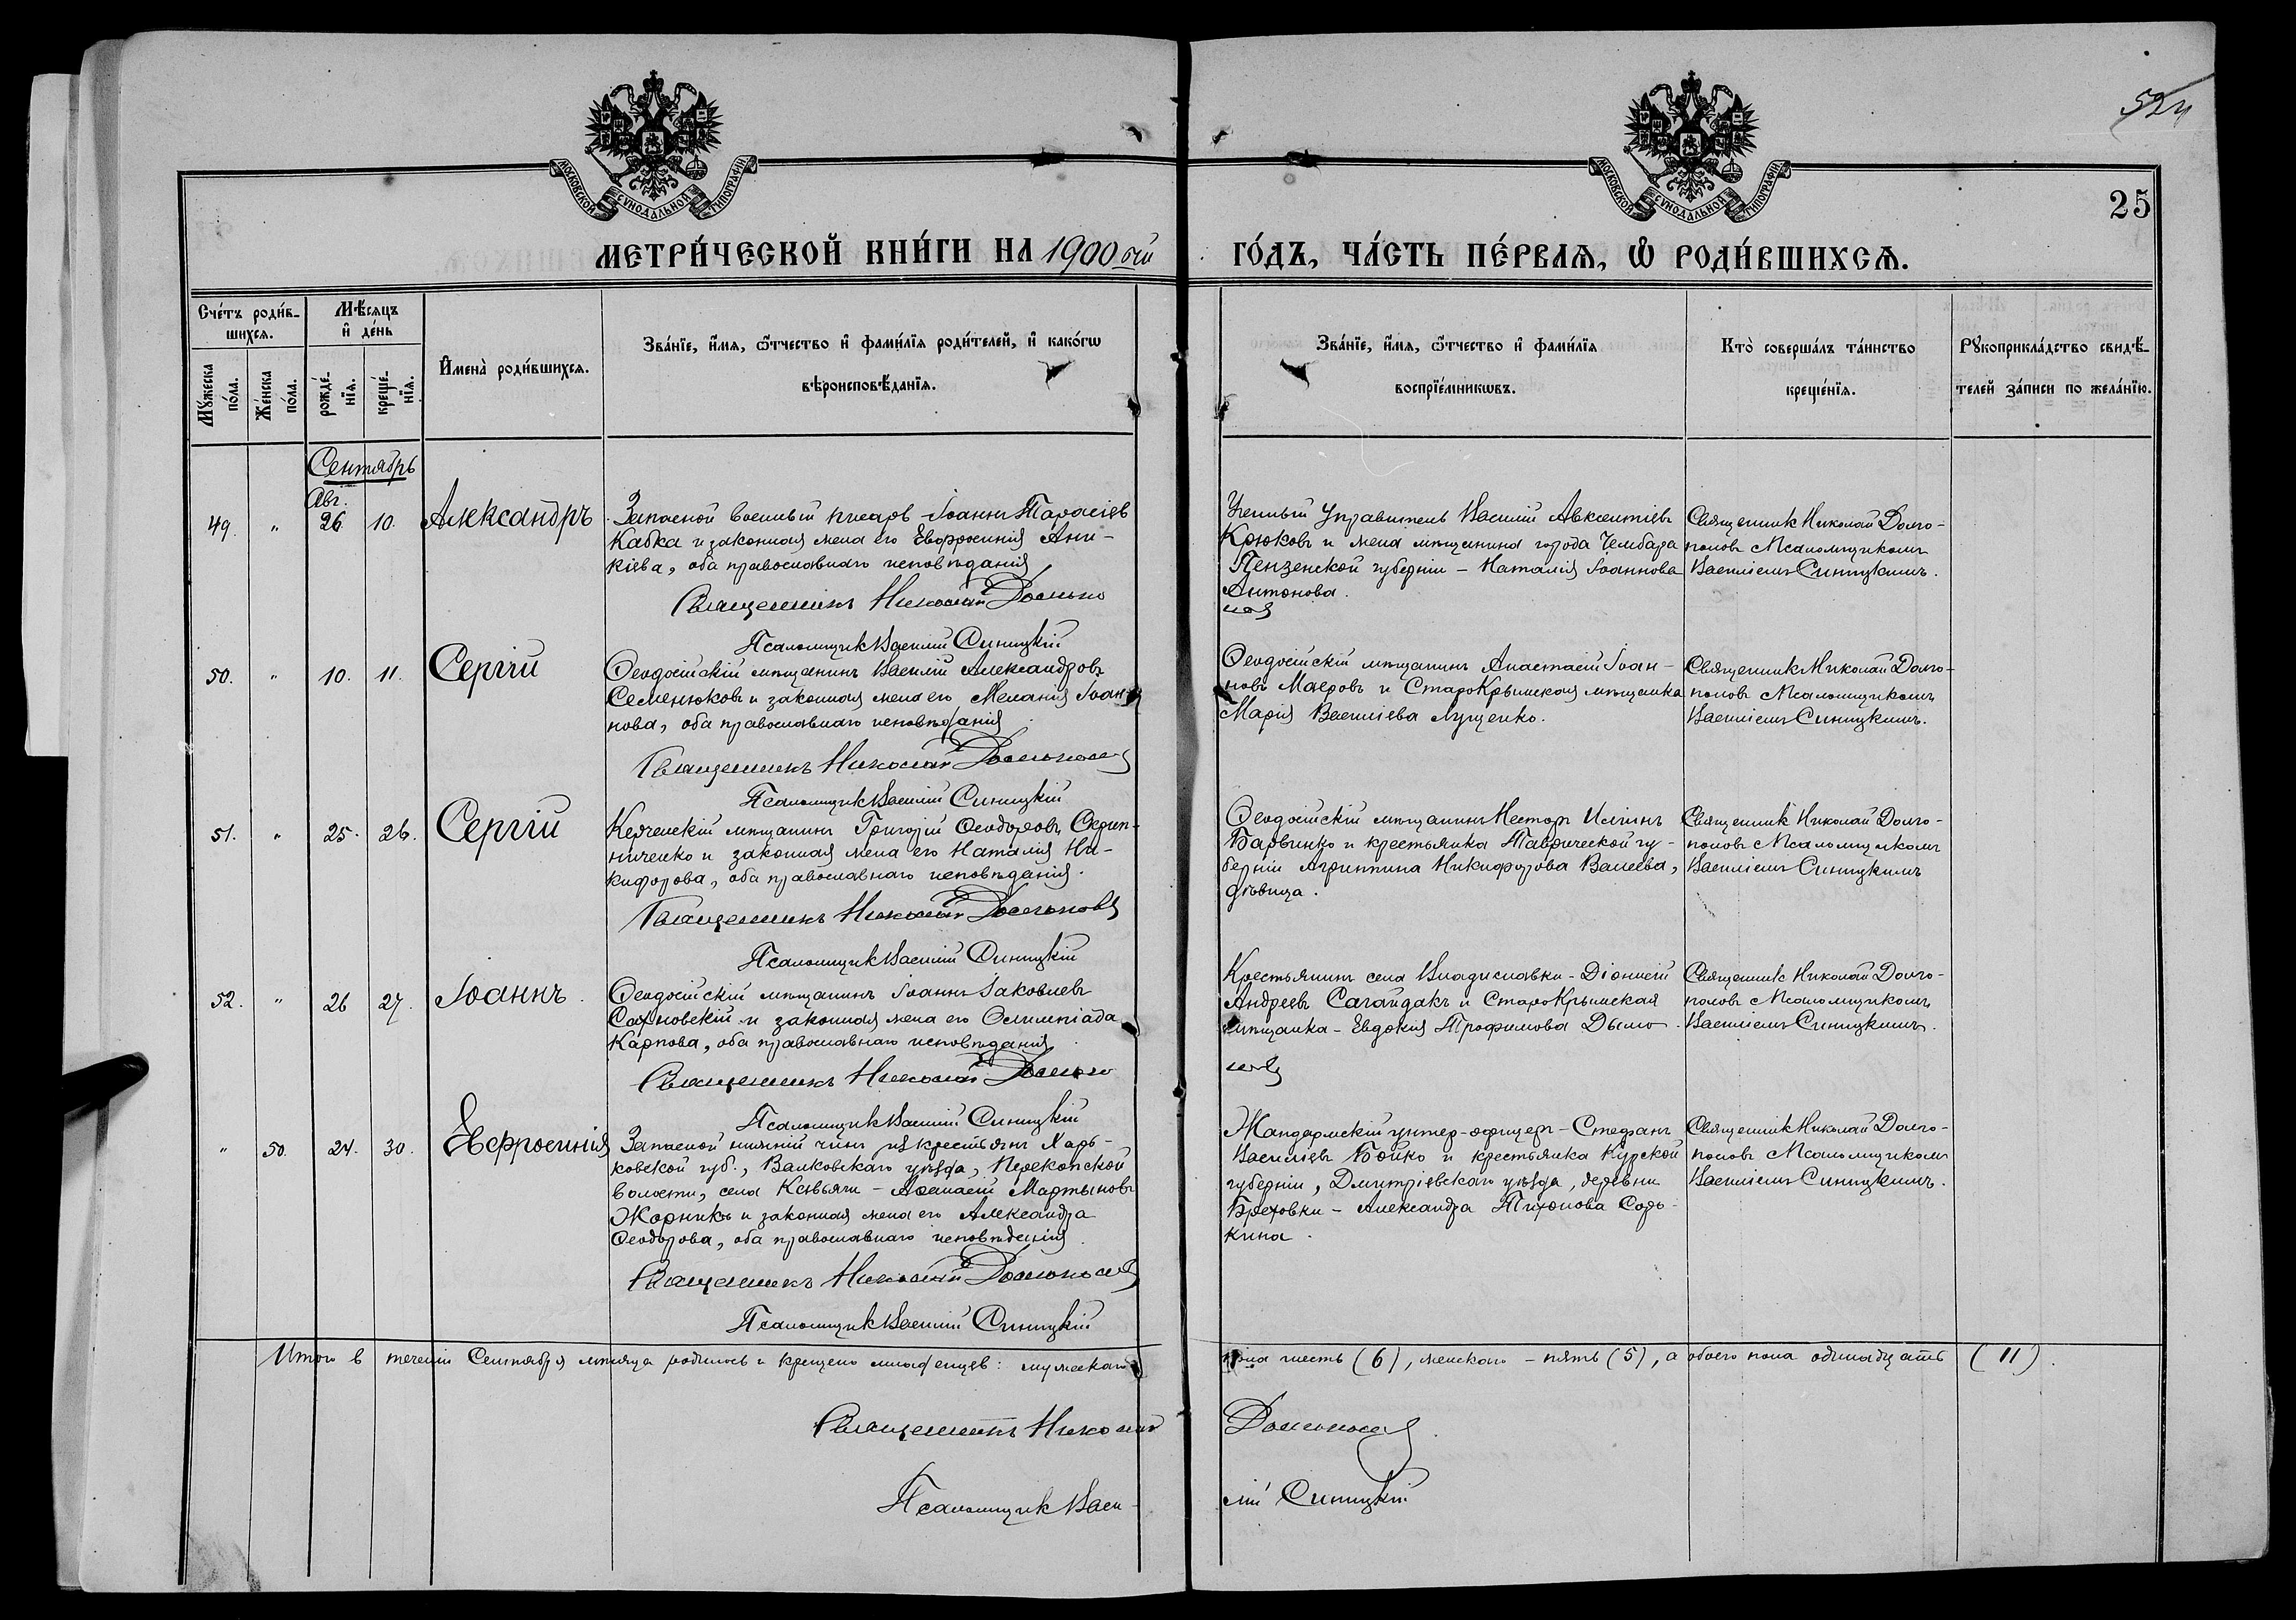 524
25
МОСКОВСКОЙ СѴНОДАЛЬНОЙ ТИПОГРАФІИ
МОСКОВСКОЙ СѴНОДАЛЬНОЙ ТИПОГРАФІИ
МЕТРИ́ЧЕСКОЙ КНИ́ГИ НА 1900 ый ГО́ДЪ, ЧА́СТЬ ПЕ́РВАѦ, Ѡ҆ РОДИ́ВШИХСѦ.
Сче́тъ роди́в-
шихсѧ.
Мꙋ́жеска
по́ла.
Же́нска
по́ла.
Мѣ́сѧцъ
и҆ де́нь
рожде́-
нїѧ.
креще́-
нїѧ.
И҆мена̀ роди́вшихсѧ.
Зва́нїе, и҆́мѧ, ѻ҆́тчество и҆ фами́лїѧ роди́телей, и҆ како́гѡ
вѣроисповѣ́данїѧ.
Зва́нїе, и҆́мѧ, ѻ҆́тчество и҆ фами́лїѧ
воспрїе́мникѡвъ.
Кто̀ соверша́лъ та́инство
креще́нїѧ.
Рꙋкоприкла́дство свидѣ́-
телей за́писи по жела́нїю.
Сентябрь
Авг.
49. " 26 10. Александръ.
Запасной военный писарь Іоаннъ Тарасіевъ
Кабка и законная жена его Евфросинія Ани-
кіева, оба православнаго исповѣданія
Священникъ Николай Долгопо
Псаломщикъ Василій Синицкій
Ученый Управитель Василій Авксентіевъ
Крюковъ и жена мѣщанина города Чембара
Пензенской губерніи – Наталія Іоаннова
Антонова.
Священникъ Николай Долго-
половъ съ Псаломщикомъ
Василіемъ Синицкимъ.
50. " 10. 11. Сергій
Ѳеодосійскій мѣщанинъ Василій Александровъ
Семенюковъ и законная жена его Меланія Іоан-
нова, оба православнаго исповѣданія
Священникъ Николай Долгополов
Псаломщикъ Василій Синицкій
Ѳеодосійскій мѣщанинъ Анастасій Іоан-
новъ Маеровъ и СтароКрымская мѣщанка
Марія Василіева Лущенко.
Священникъ Николай Долго-
половъ съ Псаломщикомъ
Василіемъ Синицкимъ.
51. " 25. 26. Сергій
Керченскій мѣщанинъ Григорій Ѳеодоровъ Скрип-
ниченко и законная жена его Наталія Ни-
кифорова, оба православнаго исповѣданія.
Священникъ Николай Долгополовъ
Псаломщикъ Василій Синицкій
Ѳеодосійскій мѣщанинъ Несторъ Иліинъ
Барвинко и крестьянка Таврической гу-
берніи Агриппина Никифорова Валеева,
дѣвица.
Священникъ Николай Долго-
половъ съ Псаломщикомъ
Василіемъ Синицкимъ
52. " 26 27. Іоаннъ.
Ѳеодосійскій мѣщанинъ Іоаннъ Іаковлевъ
Сахновскій и законная жена его Олимпіада
Карпова, оба православнаго исповѣданія
Священникъ Николай Долгопо
Псаломщикъ Василій Синицкій
Крестьянинъ села Владиславки – Діонисій
Андреевъ Сагайдакъ и СтароКрымская
мѣщанка – Евдокія Трофимова Дымо
Священникъ Николай Долго-
половъ съ Псаломщикомъ
Василіемъ Синицкимъ.
" 50. 24. 30. Евфросинія
Запасной нижній чинъ изъ крестьянъ Харь-
ковской губ., Валковскаго уѣзда, Перекопской
волости, села Кавьяги – Аѳанасій Мартыновъ
Жорникъ и законная жена его Александра
Ѳеодорова, оба православнаго исповѣданія.
Священникъ Николай Долгополовъ
Псаломщикъ Василій Синицкій
Жандармскій унтер-офицеръ – Стефанъ
Василіевъ Бойко и крестьянка Курской
губерніи, Дмитріевскаго уѣзда, деревни
Бреховки – Александра Тихонова Соро-
кина.
Священникъ Николай Долго-
половъ съ Псаломщикомъ
Василіемъ Синицкимъ.
Итого в теченіи Сентября мѣсяца родилось и крещено младенцев: мужскаго пола шесть (6), женскаго – пять (5), а обоего пола одинадцать (11).
Священникъ Николай Долгополовъ
Псаломщикъ Васи-лій Синицкій